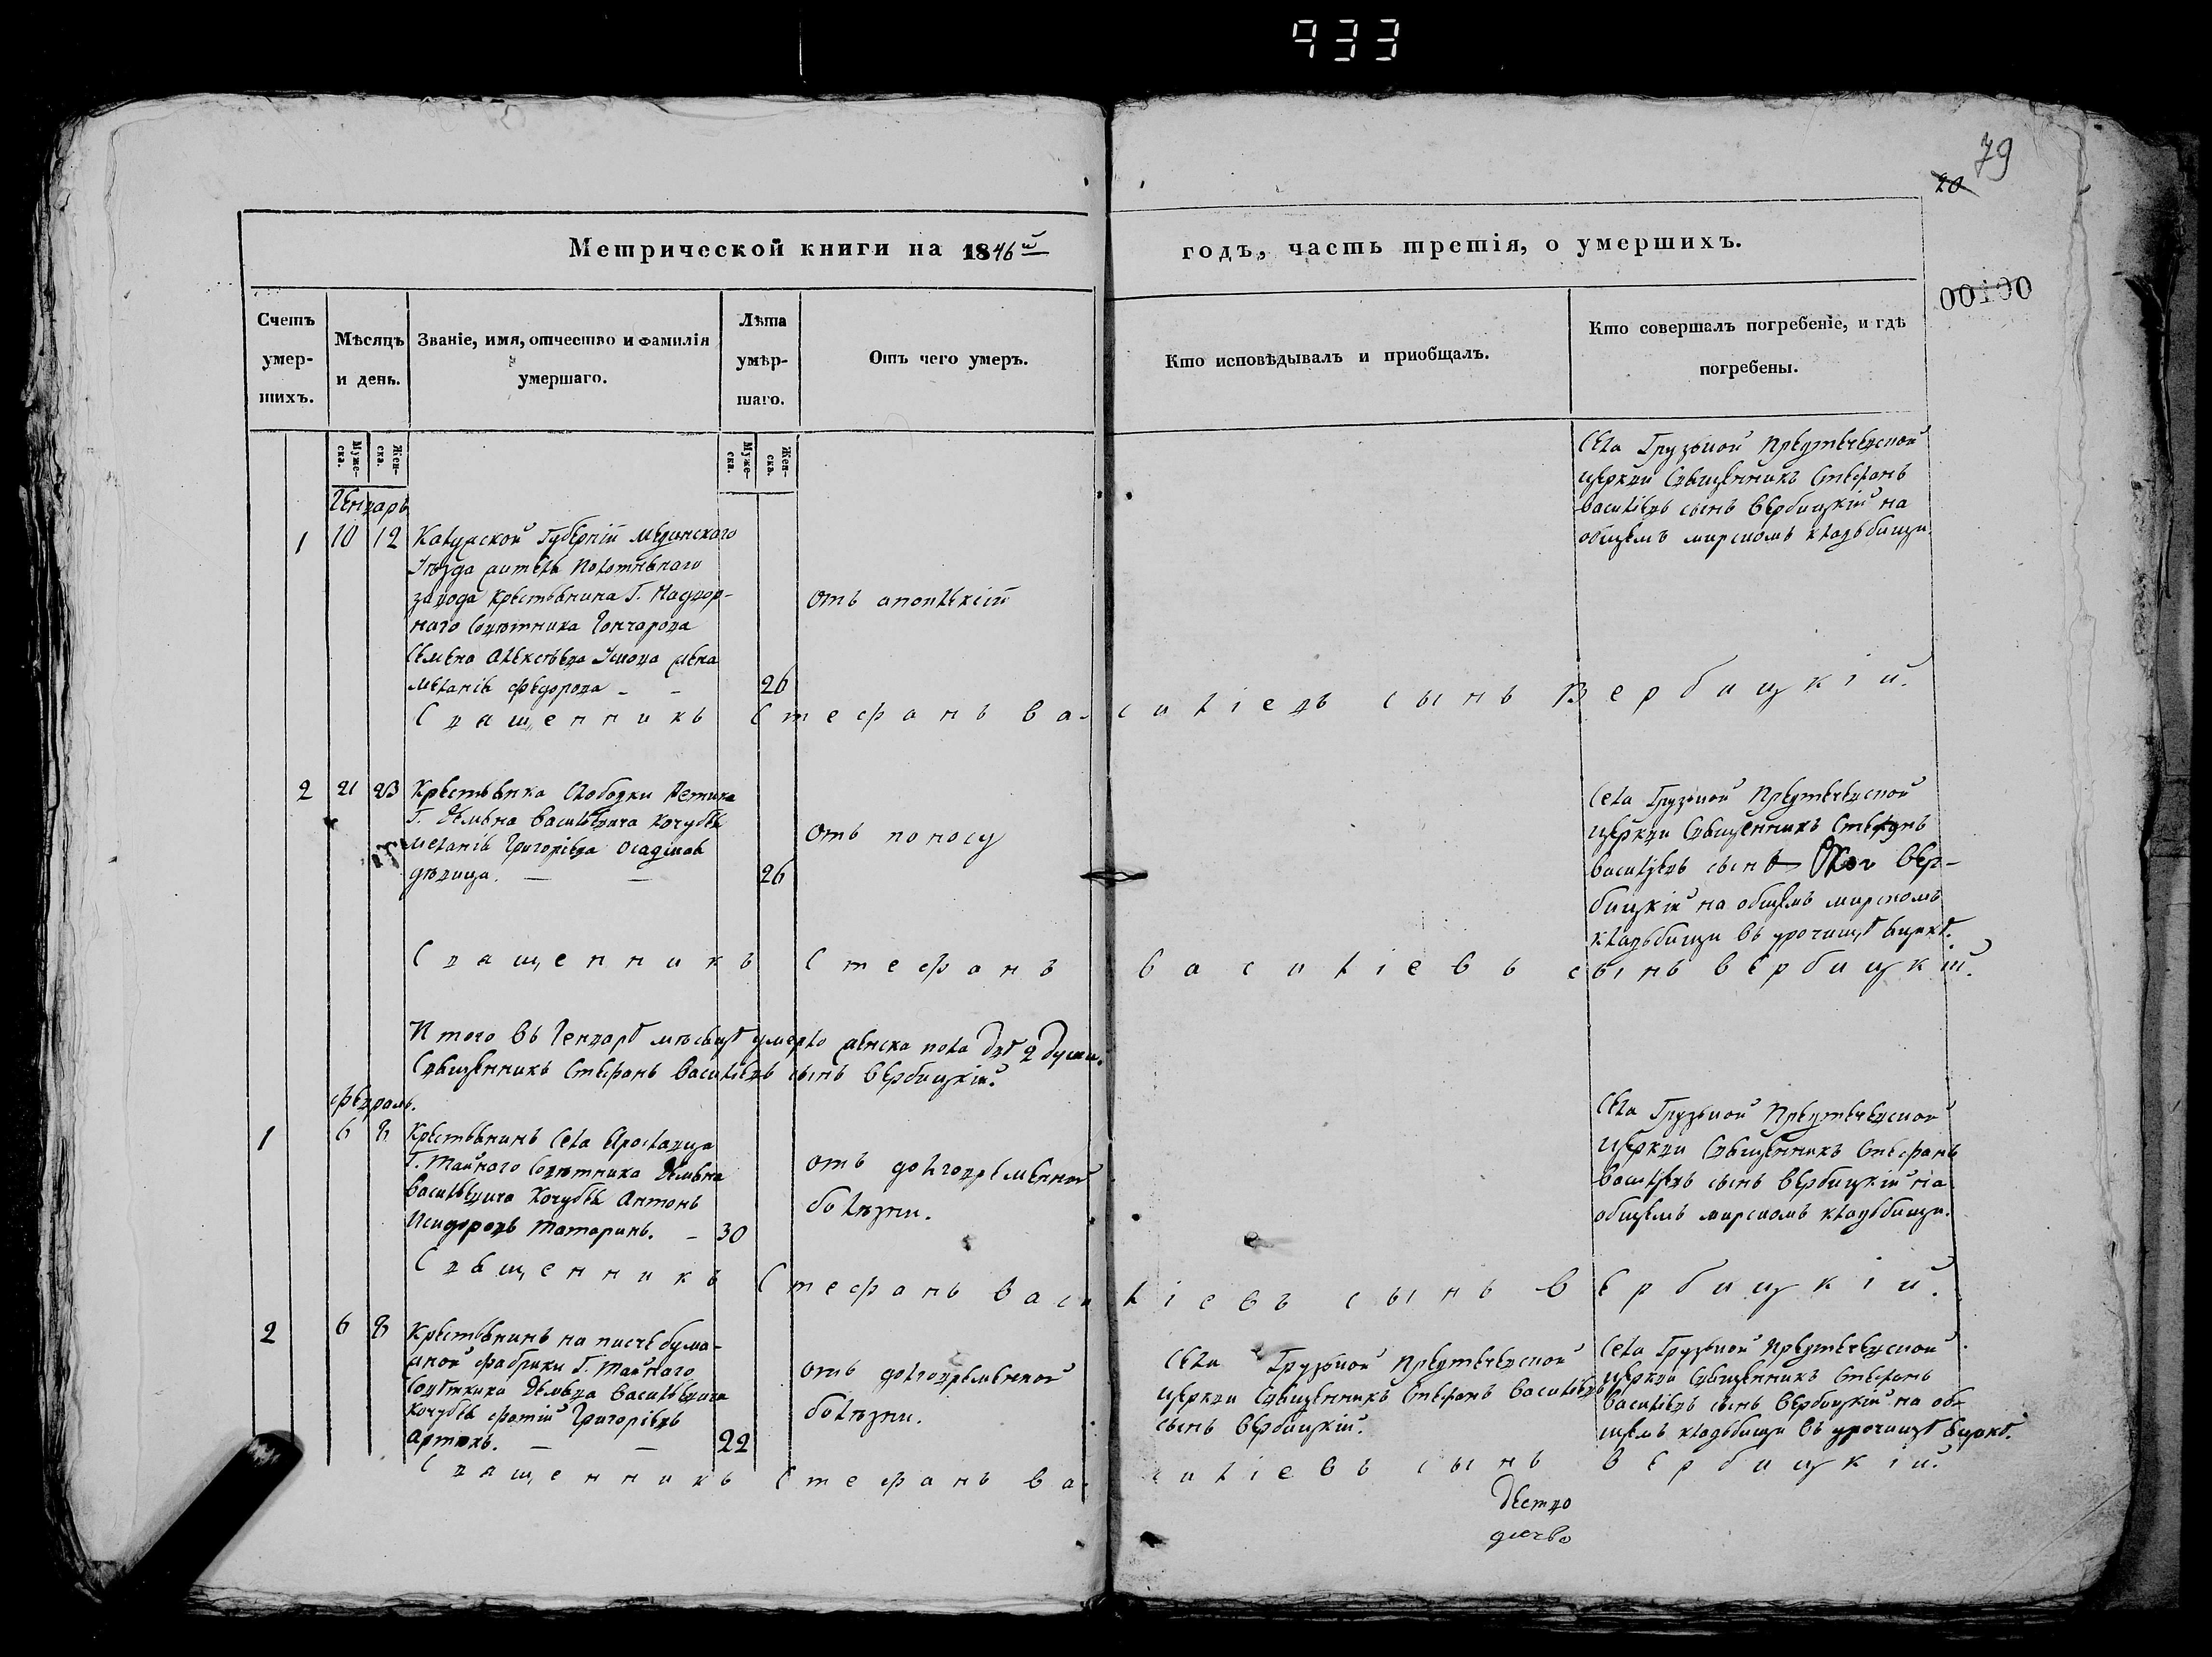 933
79
20
Метрической книги на 1846й годъ, часть третія, о умершихъ.
00100
Счетъ умер-шихъ.
Мѣсяцъ и день.
Званіе, имя, отчество и фамилія умершаго.
Лѣта умѣр-шаго.
Отъ чего умеръ.
Кто исповѣдывалъ и приобщалъ.
Кто совершалъ погребеніе, и гдѣ погребены.
Муже-ска. Жен-ска.
Муже-ска. Жен-ска.
Генварь
1 10 12
Калужской Губерніи Медынскаго
Уѣзда жителя Полотнянаго
завода крестьянина Г. Надвор-
наго Совѣтника Гончарова
Семена Алексѣева жена
Меланія Федорова - - 26
отъ апоплексіи
Села Грузской Предтечевской
церкви Священникъ Стефанъ
Василіевъ сынъ Вербицкій на
общемъ мирскомъ кладбищи
Священникъ Стефанъ Василіевъ сынъ Вербицкій.
2 21 23
Крестьянка слободки Ретика
Г. Демьяна Васильевича Кочубея
Меланія Григоріева Осадшая
дѣвица. — — 26
отъ поносу
Села Грузской Предтечевской
церкви Священникъ Стефанъ
Василіевъ сынъ Вер-
бицкій на общемъ мирскомъ
кладбищи въ урочищѣ
Священникъ Стефанъ Василіевъ сынъ Вербицкій.
Итого въ Генварѣ мѣсяцѣ умерло женска пола двѣ 2 души.
Священникъ Стефанъ Василіевъ сынъ Вербицкій.
Февраль.
1 6 8
Крестьянинъ села Ярославца
Г. Тайнаго Совѣтника Демьяна
Васильевича Кочубея Антонъ
Исидоровъ Татаринъ. - 30
отъ долговременной
болѣзни.
Села Грузской Предтечевской
церкви Священникъ Стефанъ
Василіевъ сынъ Вербицкій на
общемъ мирскомъ кладбищи.
Священникъ Стефанъ Василіевъ сынъ Вербицкій.
2 6 8
Крестьянинъ на писчебума-
жной фабрики Г. Тайнаго
Совѣтника Демьяна Васильевича
Кочубея Фотій Григоріевъ
Артюхъ. — — 22
отъ долговременной
болѣзни.
Села Грузской Предтечевской
церкви Священникъ Стефанъ Василіевъ
сынъ Вербицкій.
Села Грузской Предтечевской
церкви Священникъ Стефанъ
Василіевъ сынъ Вербицкій на об-
щемъ кладбищи въ урочищѣ
Священникъ Стефанъ Василіевъ сынъ Вербицкій.